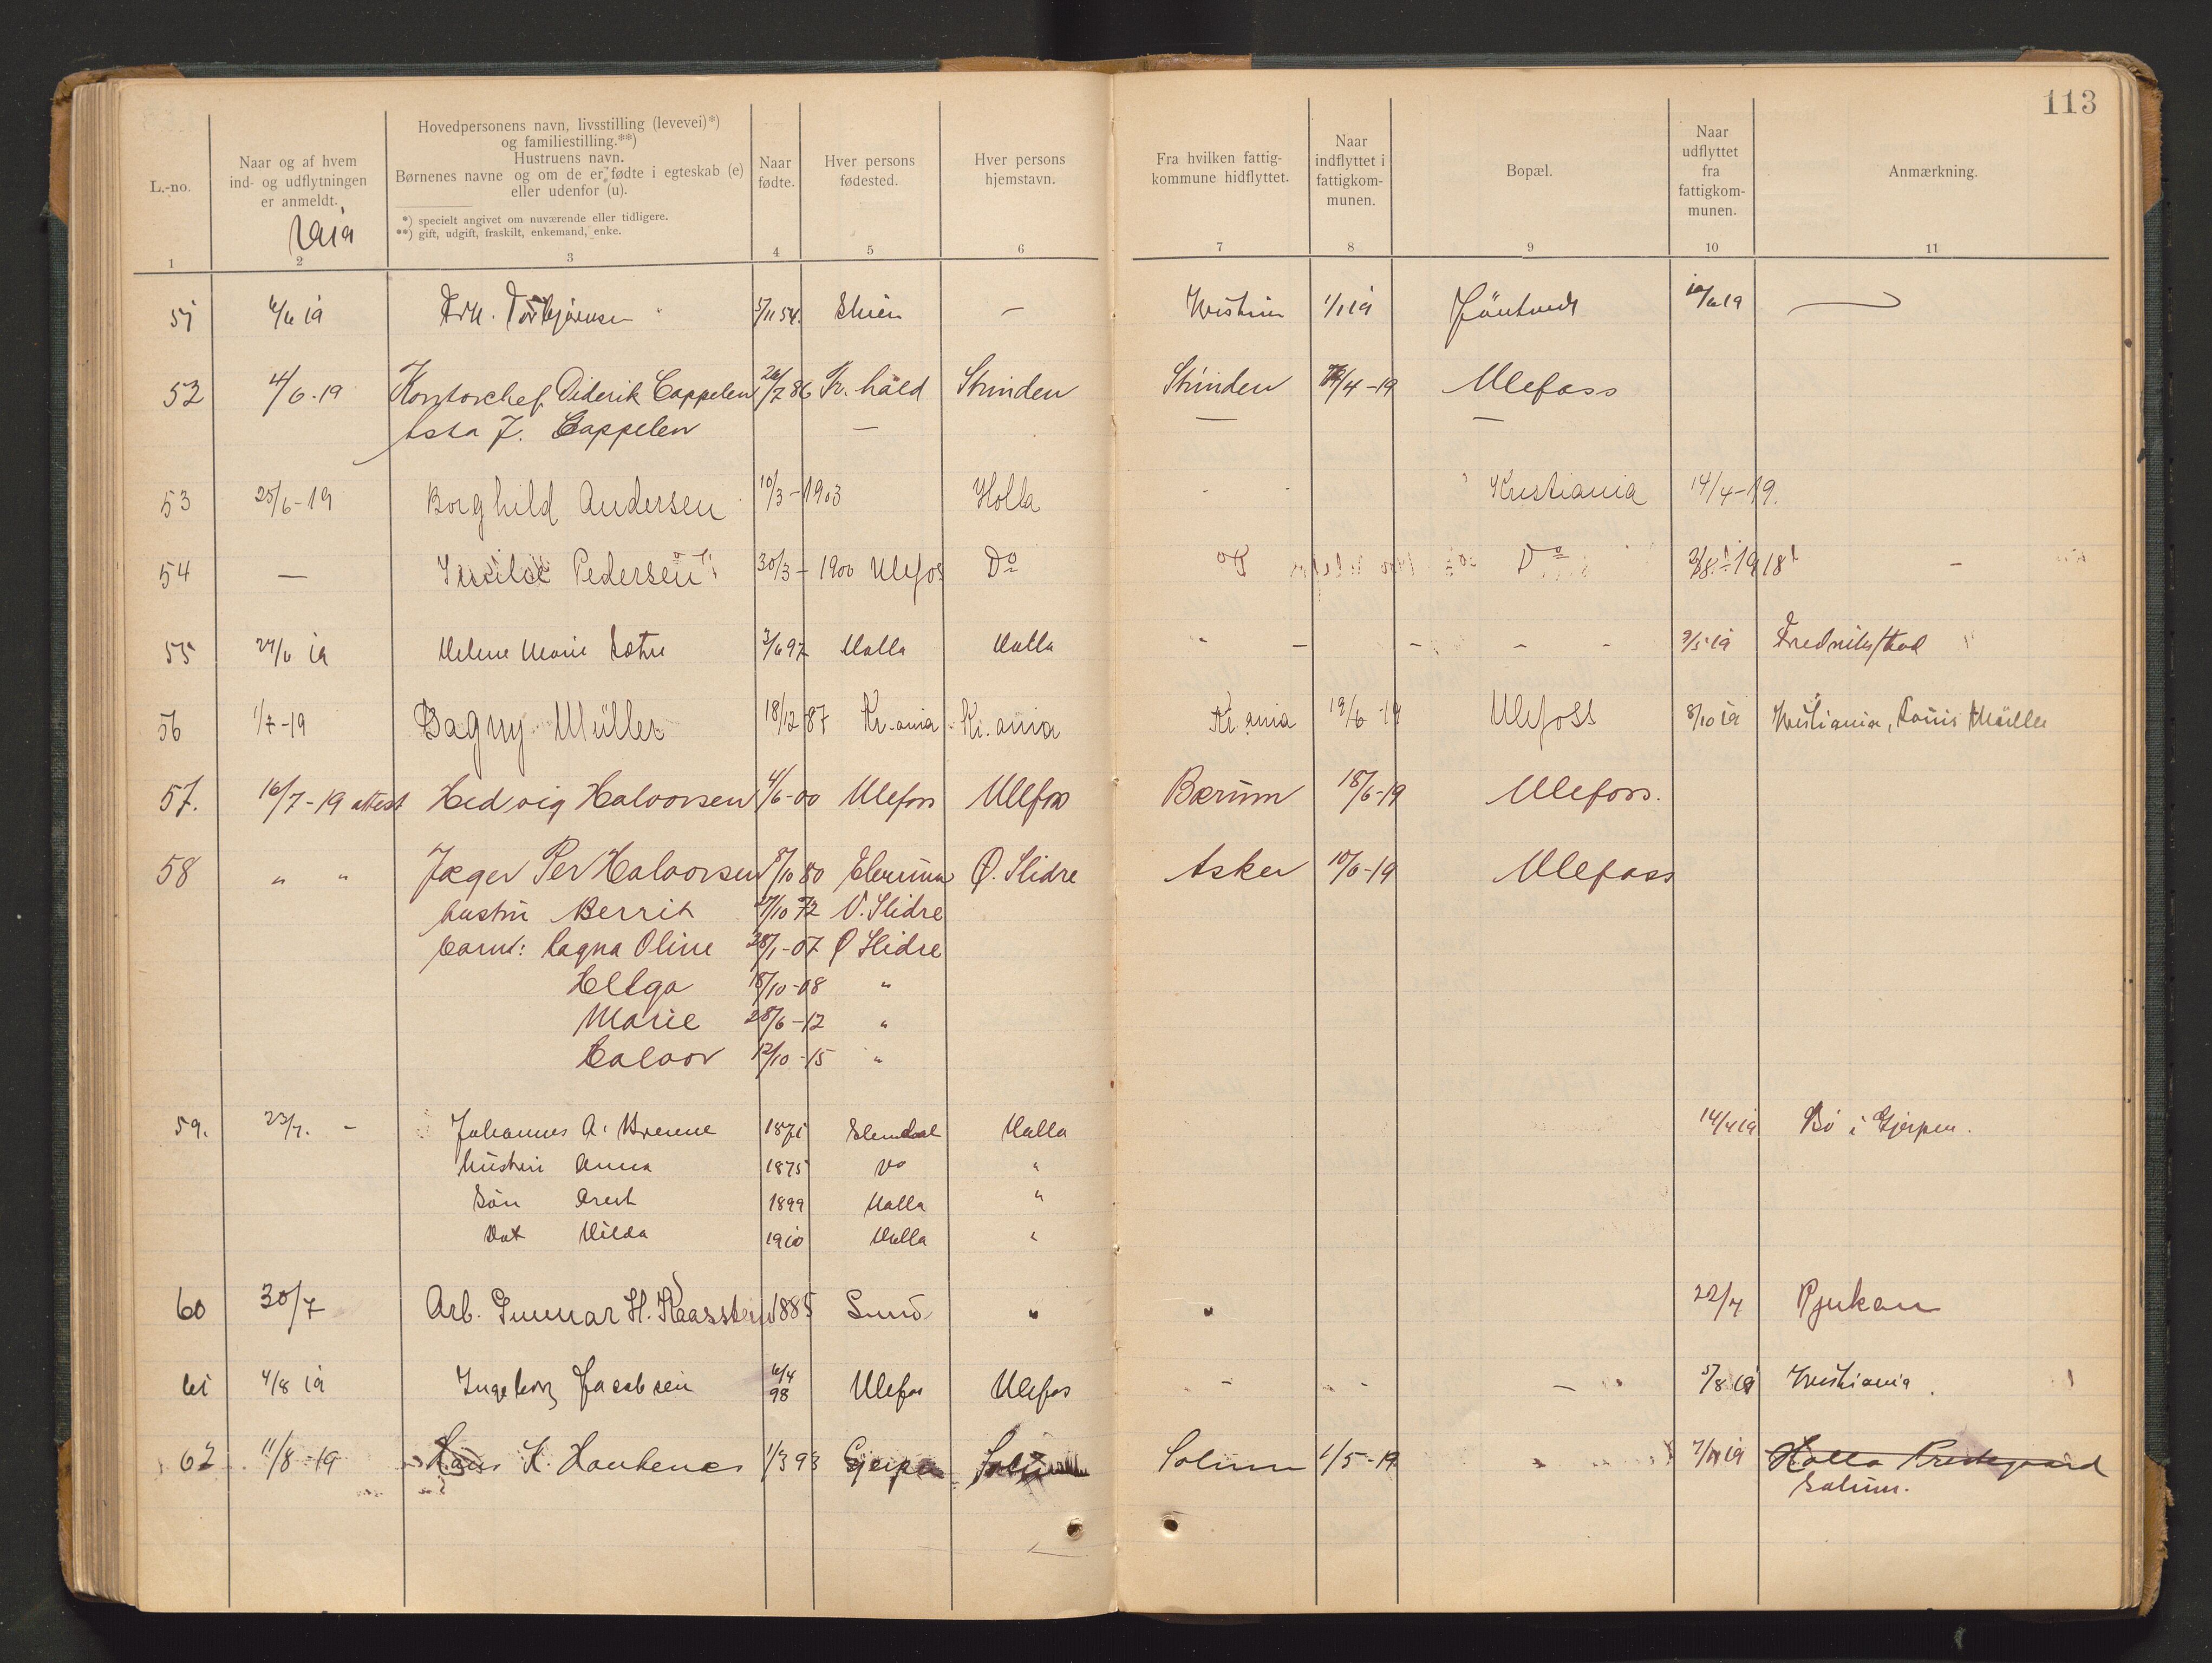 113
L.-no.
Naar og af hvem
ind- og udflytningen
er anmeldt.
Hovedpersonens navn, livsstilling (levevei)*)
og familiestilling.**)
Hustruens navn.
Børnenes navne og om de er fødte i egteskab (e)
eller udenfor (u).
*) specielt angivet om nuværende eller tidligere.
**) gift, udgift, fraskilt, enkemand, enke.
Naar
fødte.
Hver persons
fødested.
Hver persons
hjemstavn.
Fra hvilken fattig-
kommune hidflyttet.
Naar
indflyttet i
fattigkom-
munen.
Bopæl.
Naar
udflyttet
fra
fattigkom-
munen.
Anmærkning.
1 2 3 4 5 6 7 8 9 10 11
51 4/6 19 Torbjørnsen 5/11 54. Skien — 1/1 19 10/6 19
52 4/6-19 Kontorchef Diderik Cappelen 26/7 86 Fr. hald Strinden Strinden /4-19 Ulefoss
Asta J. Cappelen — — —
53 25/6-19 Borghild Andersen 10/3-1903 Holla Kristiania 14/4-19.
54 — Pedersen 30/3-1900 Ulefos Do Do Do 3/8-1918
55 27/6 19 Helene Marie Sætre 3/6 97 Holla Holla - - - - - 9/5 19 Fredrikstad
56 1/7-19 Dagny Müller 18/12 87 Kr.ania Kr.ania Kr.ania 19/6-19 Ulefoss 8/10 19 Kristiania, Louis Müller
57. 16/7-19 attest Hedvig Halvorsen 4/6-00 Ulefoss Ulefos Bærum 18/6-19 Ulefoss.
58 " " Jæger Per Halvorsen 8/10 80 Elverum Ø. Slidre Asker 10/6-19 Ulefoss
hustru Berrit /10 72 V. Slidre
barn: Ragna Oline 28/1-07 Ø Slidre
Helga 18/10-08 "
Marie 28/6-12 "
Halvor 12/10-15 "
59. 23/7. - Johannes A. 1871 Holla 14/4 19 Bö i Gjerpen.
hustru Anna 1875 Do "
Søn 1899 Holla "
Dat Hilda 1910 Holla "
60 30/7 Arb. Gunnar H. Kaasstein 1885 Lund " " 22/7 Rjukan
61 4/8 19 Ingeborg Jacobsen 6/4 98 Ulefos Ulefos - - - 5/8 19 Kristiania.
62 11/8-19 Hans K. Haukenes 1/3 93 Gjerpen Solum Solum 1/5-19 " 7/11 19 Holla Prestegaard
Solum.